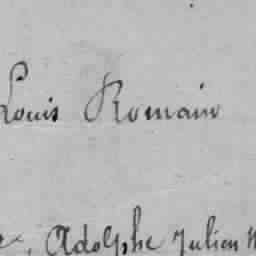 Louis Romain
Adolphe Julien